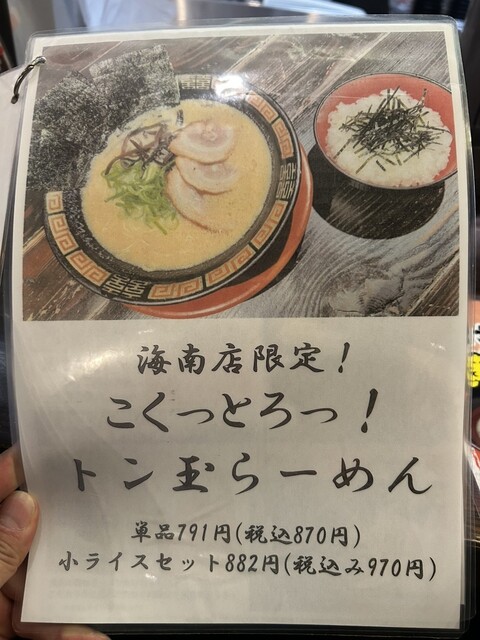 海南店限定！
こくっとろっ！
トン玉らーめん
単品791円(税込870円)
小ライスセット882円(税込み970円)